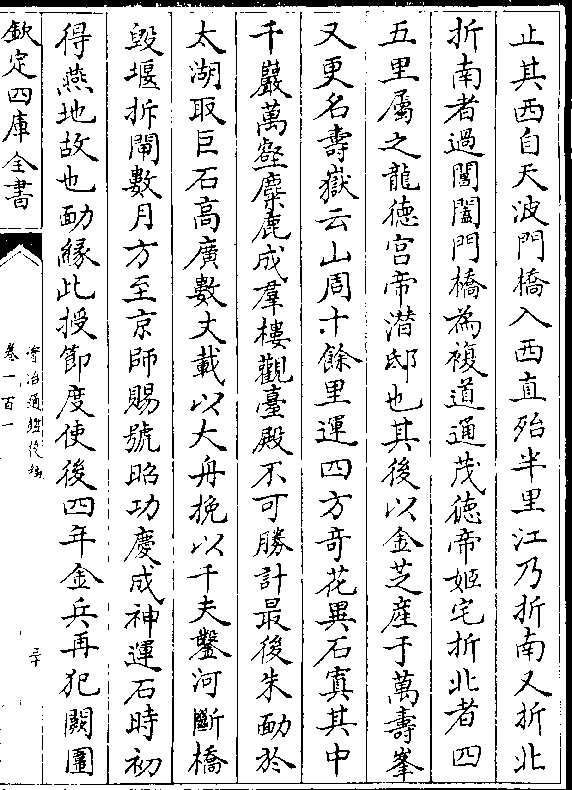 止其西自天波門橋入西直殆半里江乃折南又折北
折南者過閶闔門橋為複道通茂徳帝姬宅折北者四
五里屬之龍徳宫帝潛邸也其後以金芝産于萬壽峯
又更名壽嶽云山周十餘里運四方竒花異石寘其中
千巖萬壑麋鹿成羣樓觀臺殿不可勝計最後朱勔於
太湖取巨石高廣數丈載以大舟挽以千夫鑿河斷橋
毁堰拆閘數月方至京師賜號昭功慶成神運石時初
得燕地故也勔緣此授節度使後四年金兵再犯闕圍
欽定四庫全書
資治通鑑後編
卷一百一
三十